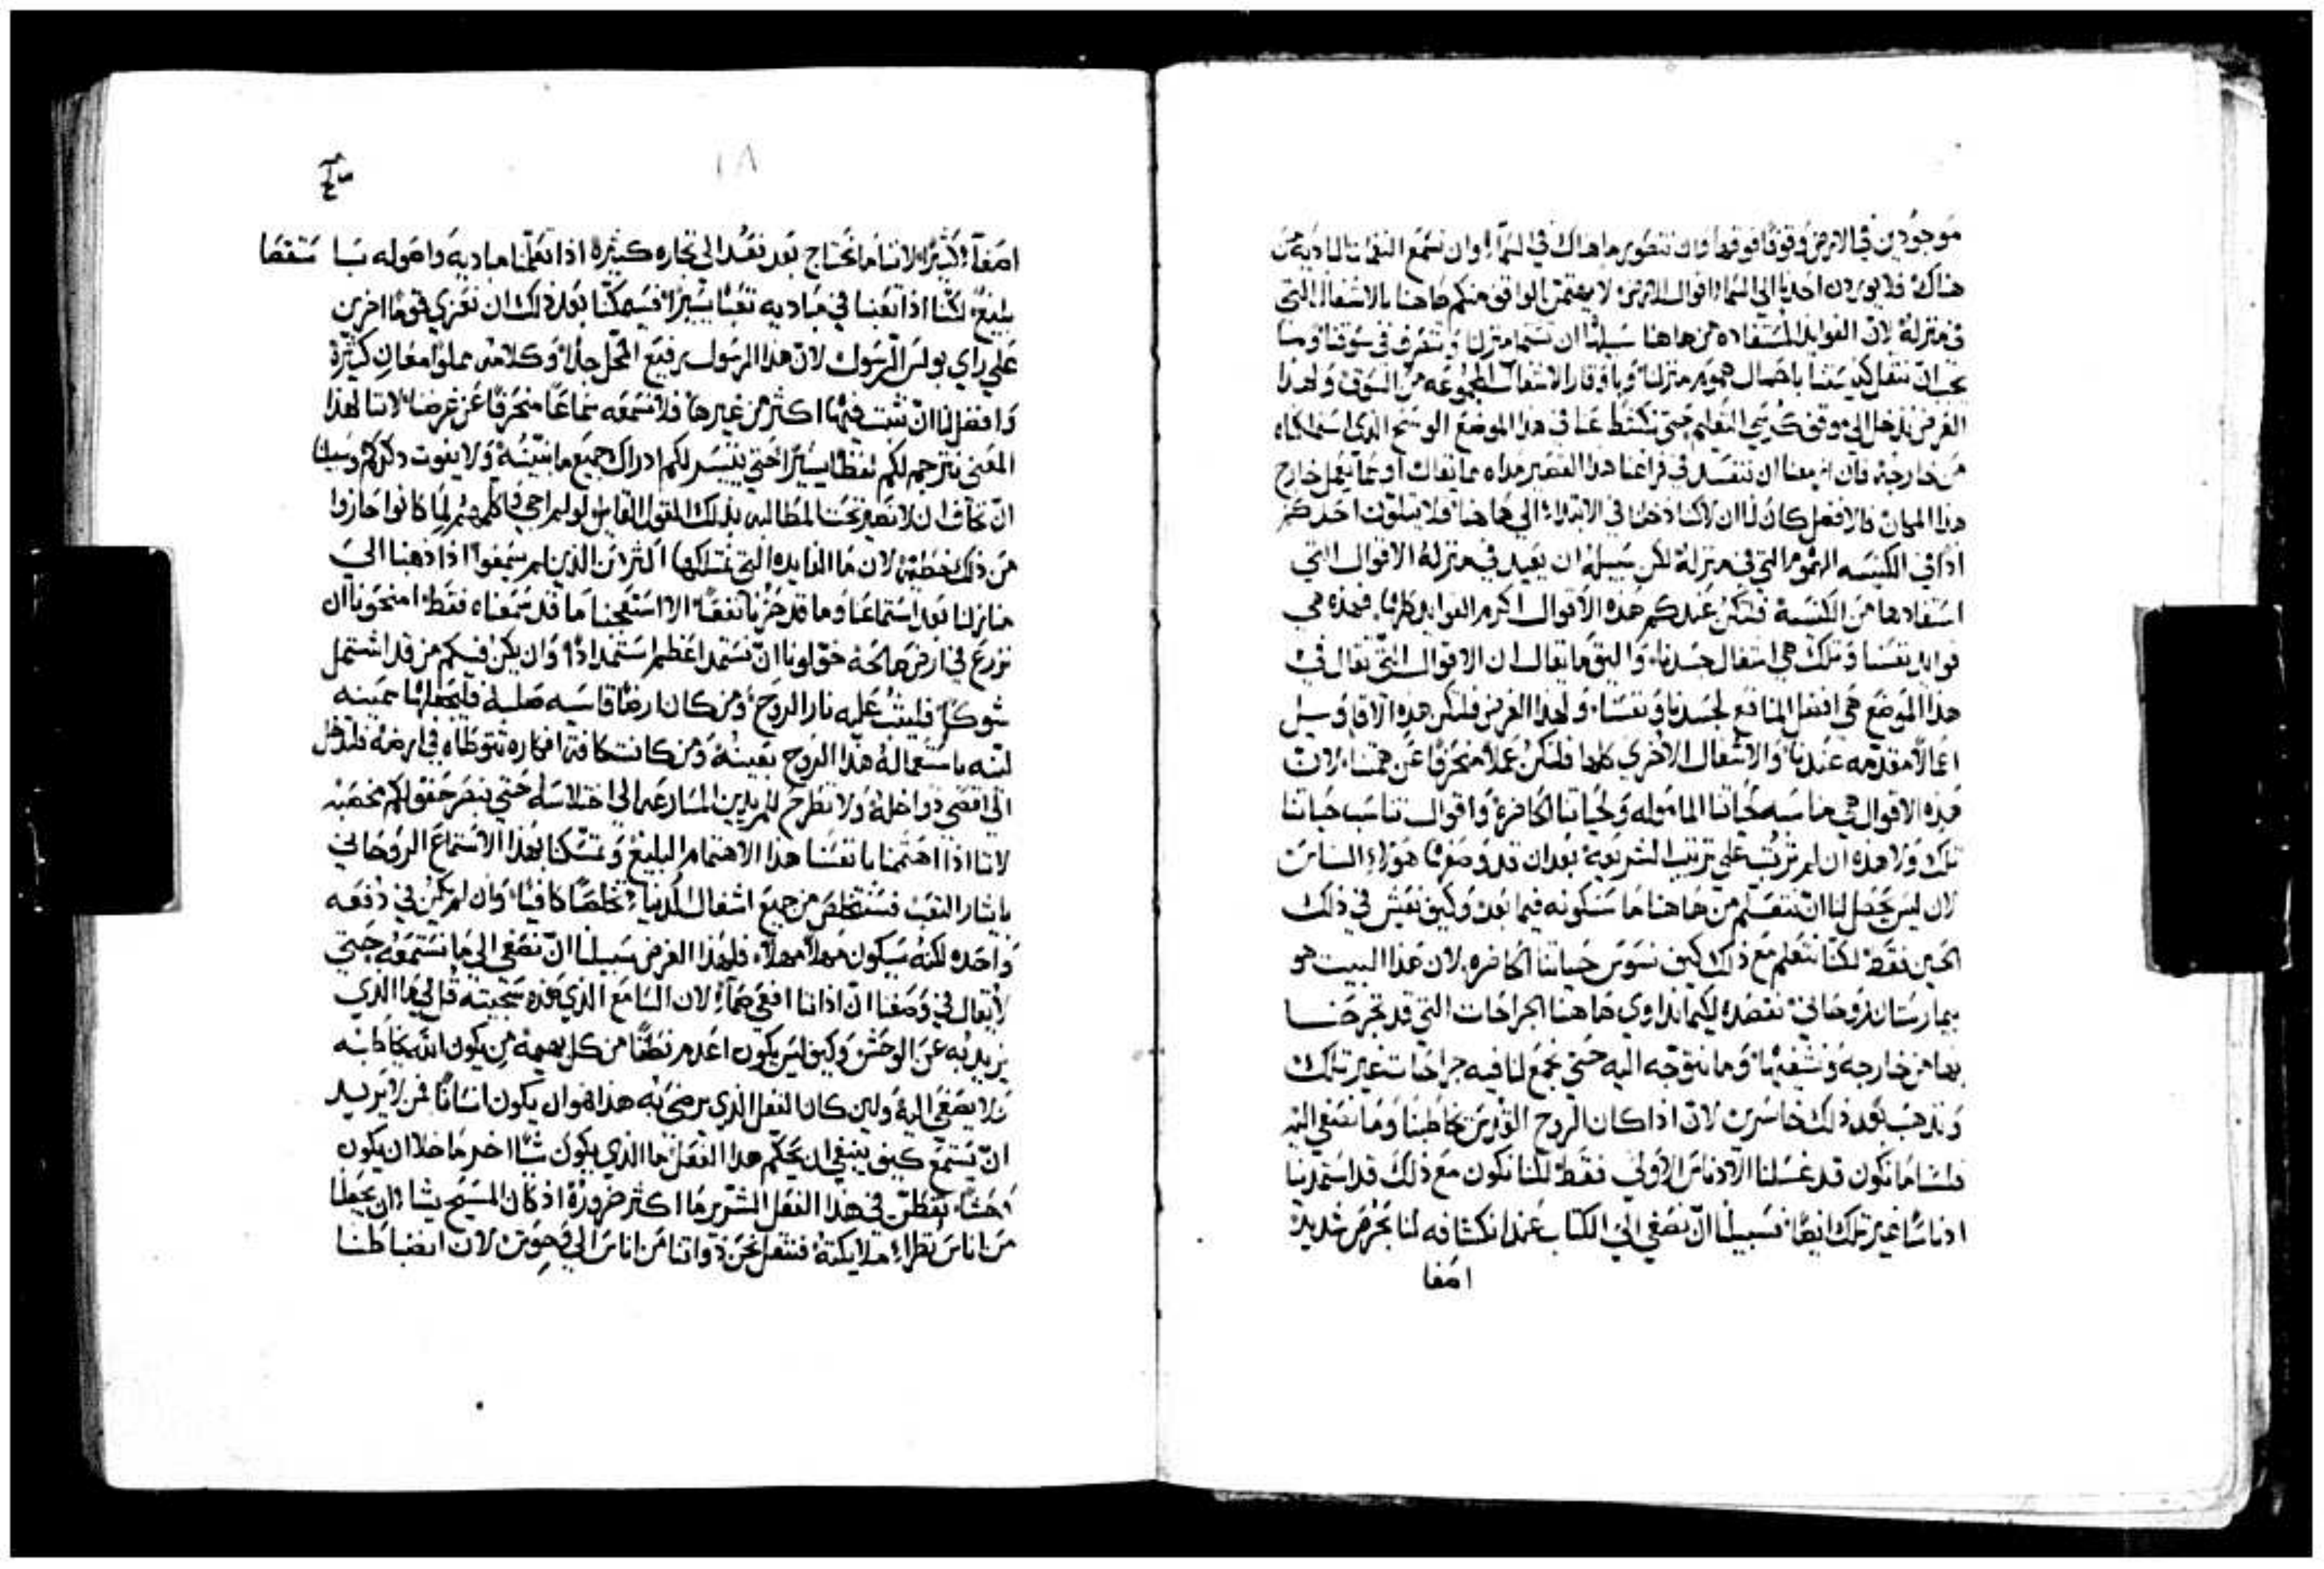 موجودين في الارض وقوفًا فوقها وان نتصور ما هناك في السماء وان نسمع النغمات الهاديه من
هناك فلا يوردن احدنا الي السماء اقوال الارض لا يهتمن الواقف منكم هاهنا بالاشغال التي
في منزله لان الفوايد المستفاده من هاهنا سبيلها ان تسما منزلنا وتتصرف في سوقنا وما
يجب ان ننقل كنيستنا باحمال هموم منزلنا وباوقار الاشغال المجموعه من السوق ولهذا
الغرض ندخل الي موقف كرسي التعليم حتي نكشط عنا في هذا الموضع الوسخ الذي استملكناه
من خارجه فان ازمعنا ان ننفسد في فراغنا هذا القصير مداه مما يقال او مما يعمل خارج
هذا المكان فالافضل كان لنا ان لا كنا دخلنا في الابتداء الي هاهنا فلا يتلون احدكم
اذا في الكنيسه الهموم التي في منزله لكن سبيله ان يعيد في منزله الاقوال التي
استفادها من الكنيسة فتكن عندكم هذه الاقوال اكرم الفوايد طرًا فهذه هي
فوايد نفسنا وتلك هي اشغال جسدنا واليق ما يقال ان الاقوال التي تقال في
هذا الموضع هي افضل المنافع لجسدنا ونفسنا ولهذا الغرض فلتكن هذه الاقاويل
اعمالًا مقدمه عندنا والاشغال الاخري كلها فلتكن عملًا منحرفًا عن همتنا لان
هذه الاقوال هي مناسبه لحياتنا المامولة ولحياتنا الحاضرة واقوال تناسب حياتنا
تلك ولا هذه ان لم ترتب علي ترتيب الشريعه بعد ان قد وصفها هولاء الناس
لان ليس يحصل لنا ان نتعلم من هاهنا ما سنكونه فيما بعد وكيف نعيش في ذلك
الحين فقط لكنا نتعلم مع ذلك كيف نسوس حياتنا الحاضره لان هذا البيت هو
بيمارستان روحاني نقصده لكيما نداوي هاهنا الجراحات التي قد تجرحنا
بها من خارجه ونشفيها وما نتوجه اليه حتي نجمع لنا فيه جراحات غير تلك
ونذهب بعد ذلك خاسرين لان اذا كان الروح القدس يخاطبنا وما نصغي اليه
فلسنا ما نكون قد غسلنا الادناس الاولي فقط لكنا نكون مع ذلك قد استمدينا
ادناسًا غير تلك ايضًا فسبيلنا ان نصغي الي الكتاب عند انكشافه لنا بحرص شديد
اصغا
١٨
اصغآء كثيرًا لاننا ما نحتاج بعد نقد الي تجاره كثيرة اذا تعلمنا مباديه واصوله بنا متقصا
بليغ لكننا اذا تعبنا في مباديه تعبًا يسيرًا فسيمكنا بعد ذلك ان نعزي قومًا اخرين
علي راي بولس الرسول لان هذا الرسول رفيع المحل جدًا وكلامه مملوا معانٍ كثيرة
وافضل لنا ان نثبت فيها اكثر من غيرها فلا نسمعه سماعًا منحرفًا عن غرضنا لاننا لهذا
المعني نترجم لكم لفظًا يسيرًا حتي يتيسر لكم ادراك جميع ما نبينه ولا يفوت ذكركم وسبيلنا
ان نخاف ان لا نصير تحت المطالبه بذلك القول القايل لو لم اجي واكلمهم لما كانوا حازوا
من ذلك خطيه لان ما الفايده التي نمتلكها اكثر من الذين لم يسمعوا اذا ذهبنا الي
منازلنا بعد استماعنا وما قد حزنا نفعًا الا استعجبنا ما قد سمعناه فقط امنحونا ان
نزرع في ارض صالحة خولونا ان نستمد اعظم استمدادًا وان يكن فيكم من قد اشتمل
شوكًا فليثب عليه نار الروح ومن كان ارضًا قاسيه صلبه فليجعلها سمينه
لينه باستعماله هذا الروح بعينه ومن كانت كافة افكاره تتوطاه في ارضه فليدخل
الي اقصي دواخله ولا نطرح للمريدين المسارعه الي اختلاسه حتي نبصر حقولكم مخصبه
لاننا اذا اهتممنا بانفسنا هذا الاهتمام البليغ وتمسكنا بهذا الاستماع الروحاني
بايثار التعب فسنتخلص من جميع اشغال الدنيا تخلصًا كافيًا وان لم يكن في دفعه
واحده لكنه سيكون مهلًا مهلًا فلهذا الغرض سبيلنا ان نصغي الي ما نستمعه حتي
لا يقال في وصفنا ان اذاننا افعي صمآء لان السامع الذي هذه سجيته قل لي ما الذي
يزيد به عن الوحش وكيف ليس يكون اعدم نطقًا من كل بهيمة من يكون الله يخاطبه
ولا يصغي اليه ولين كان الفعل الذي يرضي به هذا هو ان يكون انسانًا فمن لا يريد
ان يستمع كيف ينبغي ان يحكم هذا الفعل فما الذي يكون شيًا اخر ما خلا ان يكون
وحشًا تفطن في هذا الفعل الشرير ما اكثر ضرورة اذ كان المسيح يشاء ان يجعلنا
من اناس نظراء ملايكته فننقل نحن ذواتنا من اناس الي وحوش لان انضباطنا